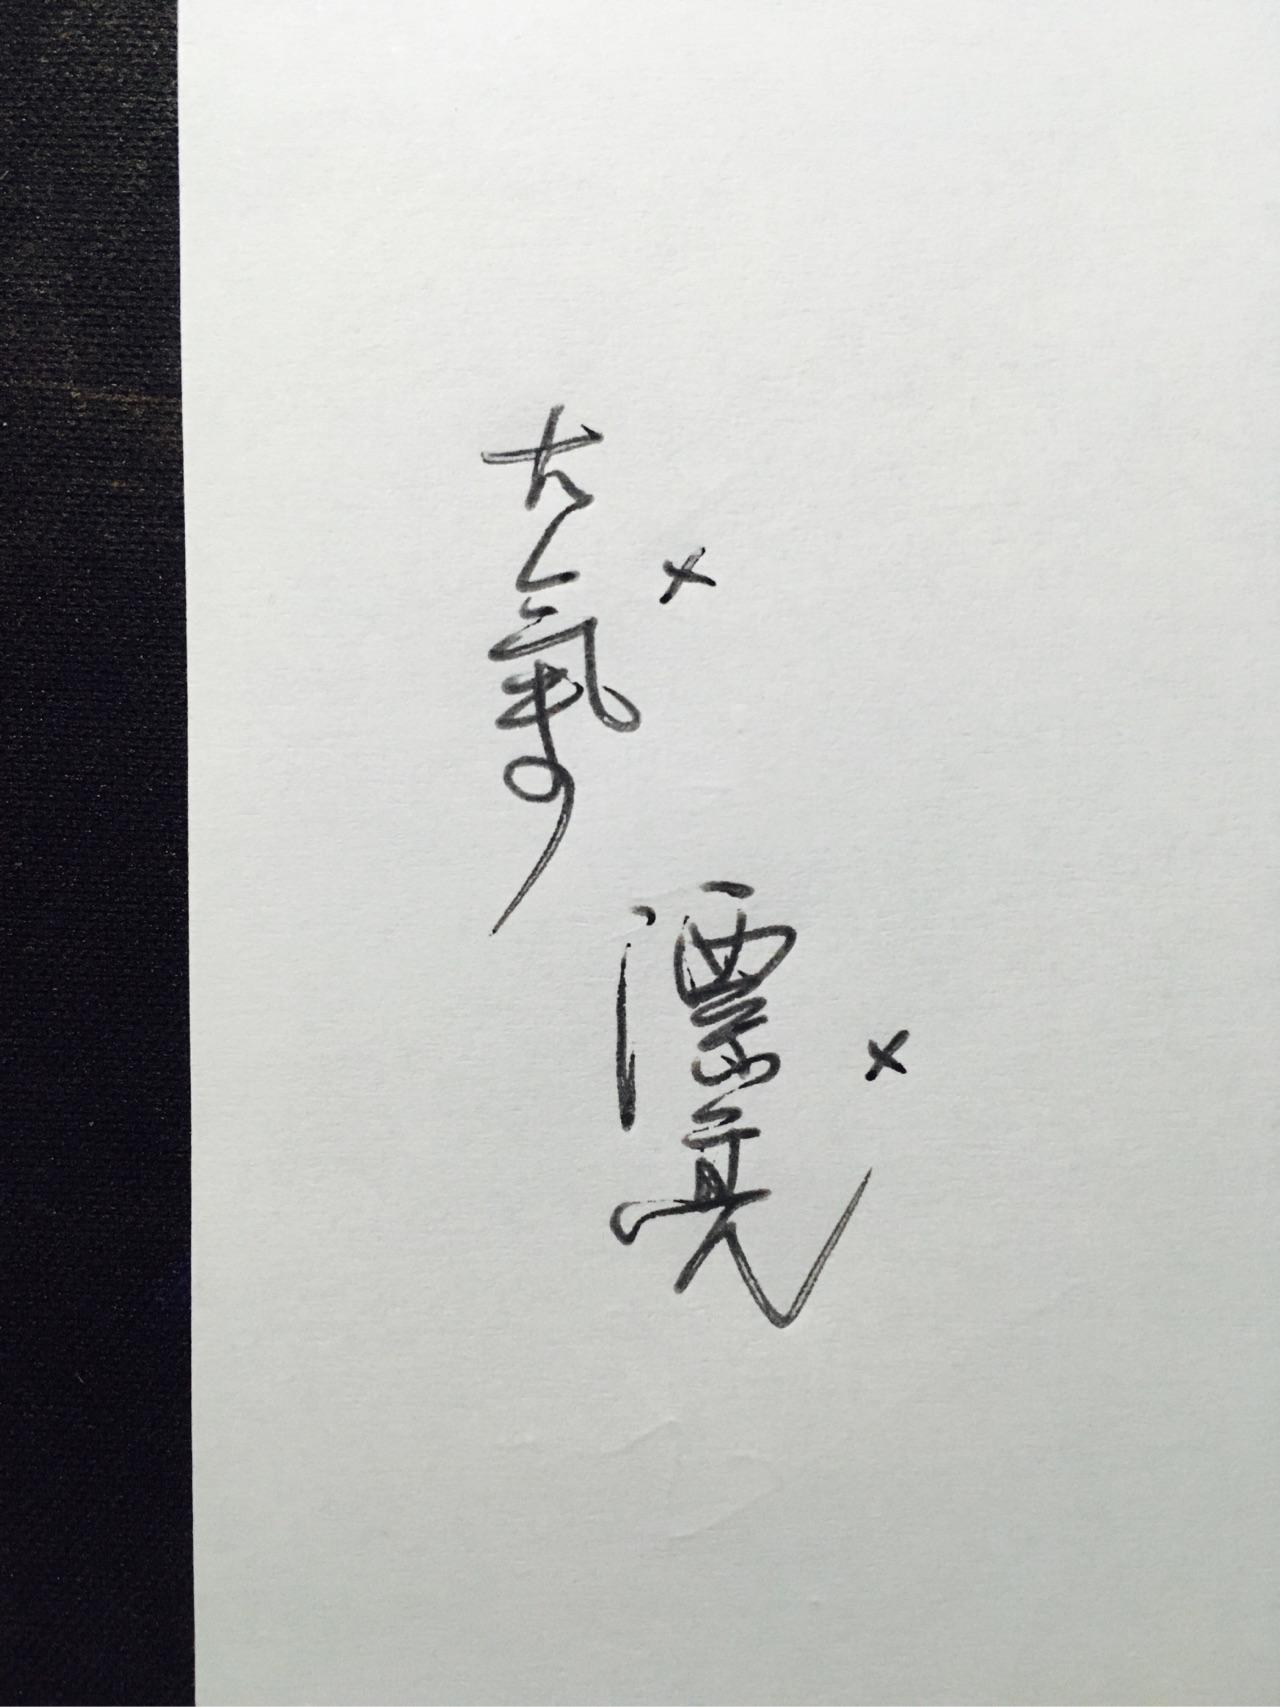 大氣
×
漂亮
×